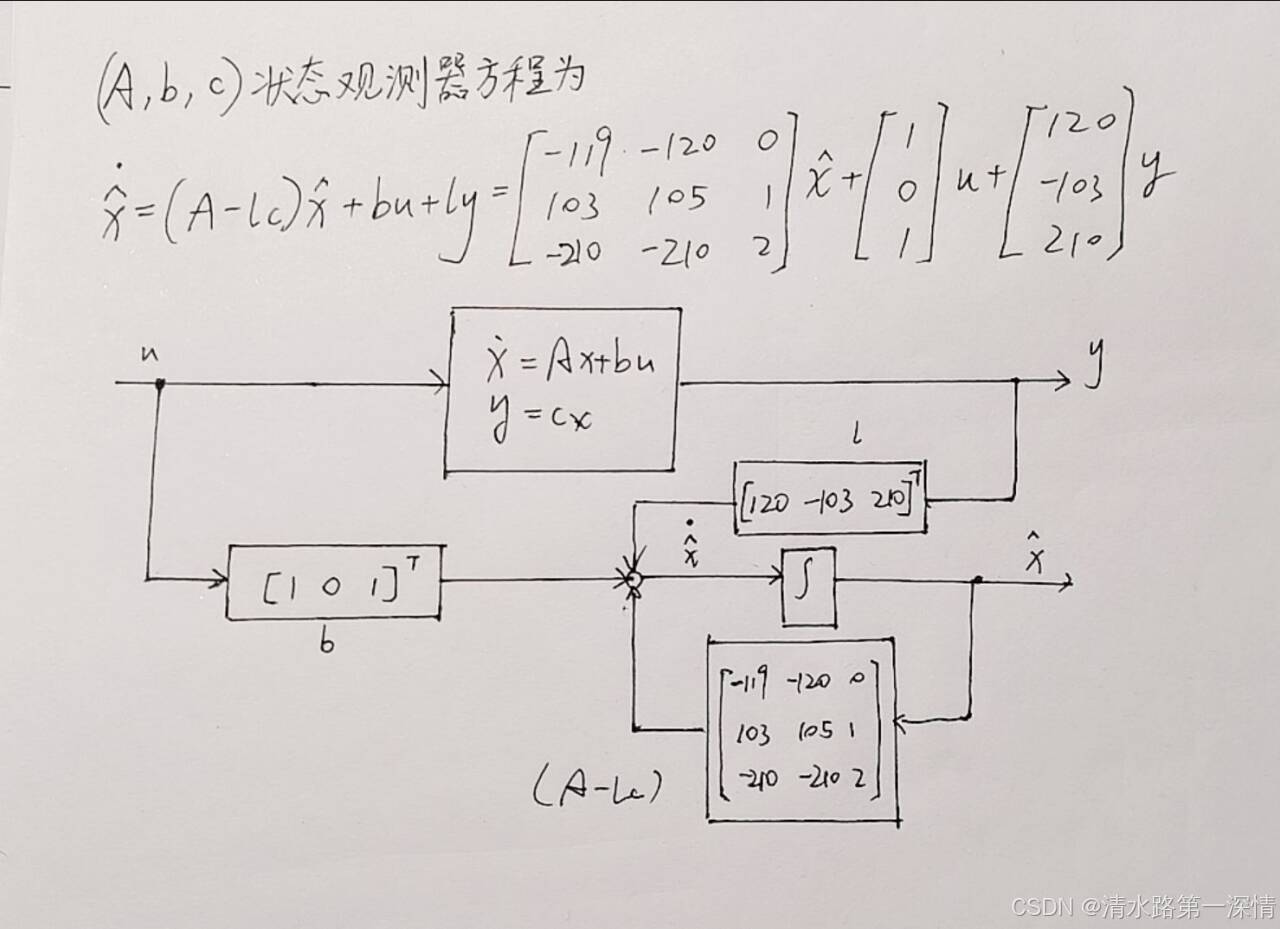 (A,b,c)状态观测器方程为
ẋ̂=(A-lc)x̂+bu+ly=[-119 -120 0; 103 105 1; -210 -210 2]x̂+[1; 0; 1]u+[120; -103; 210]y
u
ẋ=Ax+bu
y=cx
y
l
[120 -103 210]ᵀ
ẋ̂
x̂
[1 0 1]ᵀ
∫
b
-119 -120 0
103 105 1
-210 -210 2
(A-lc)
CSDN @清水路第一深情